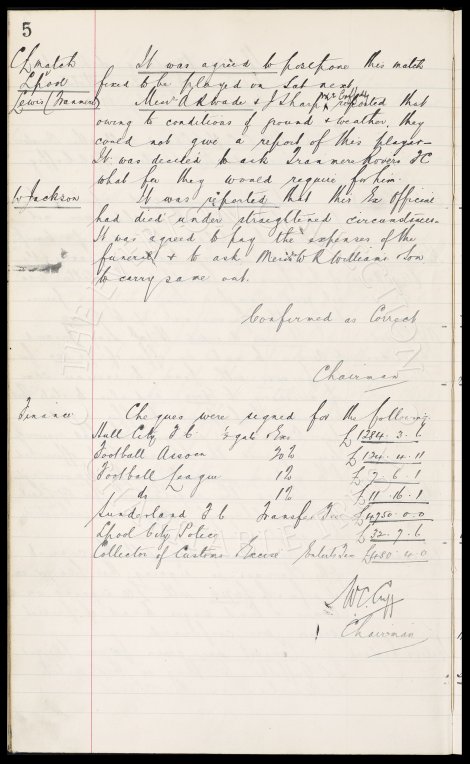 5
CL match It was agreed to postpone this match
Lpool fixed to be played on Sat next.
Lewis (Tranmere) Messrs A R Wade & J Sharp reported that
owing to conditions of ground & weather, they
could not give a report of this player –
It was decided to ask Tranmere Rovers FC
what fee they would require for him.
W Jackson It was reported that this Ex Official
had died under straightened circumstances –
It was agreed to pay the expenses of the
funeral & to ask Messrs W R Williams & Son
to carry same out.
Confirmed as Correct
Chairman
Finance Cheques were signed for the following
Hull City F C ½ gate & Exs £1284. 3. 6
Football Assocn 20% £124. 4. 11
Football League 1% £7. 6. 1
do 1% £11. 16. 1
Sunderland F C Transfer Fee £4750. 0. 0
Lpool City Police £32. 7. 6
Collector of Customs & Excise Entertn Tax £480. 4. 0
W.C. Cuff
Chairman